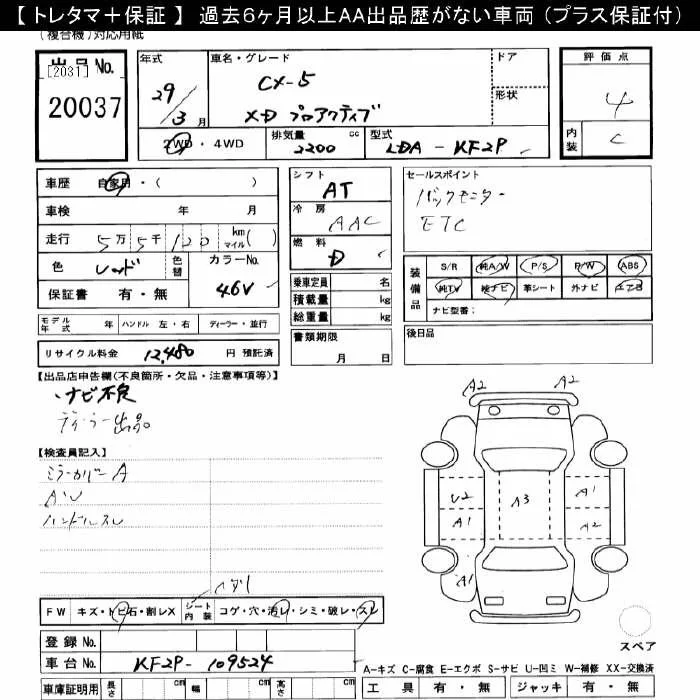 【 トレタマ＋保証 】 過去6ヶ月以上AA出品歴がない車両（プラス保証付）
(複合機)対応用紙
出品 No.
[2031]
20037
年式
29/3月
車名・グレード
CX-5
XD プロアクティブ
ドア
形状
評価点
4
内装
C
2WD・4WD
排気量 2200 cc
型式 LDA - KF2P
車歴 自家用・( )
車検 年 月
走行 5万5千120 km マイル( )
色 レッド 色替 カラーNo. 46V
保証書 有・無
シフト AT
冷房 AAC
燃料 D
乗車定員 名
積載量 kg
総重量 kg
セールスポイント
バックモニター
ETC
装備品
S/R 純A/W P/S P/W ABS
純TV 純ナビ 革シート 外ナビ エアB
ナビ型番:
モデル年式 年 ハンドル 左・右 ディーラー・並行
リサイクル料金 12,480 円 預託済
書類期限
月 日
後日品
【出品店申告欄(不良箇所・欠品・注意事項等)】
・ナビ不良
ディーラー出品。
【検査員記入】
ミラーカバー A
AU
ハンドルスレ
A2 A2
U2 A3 A1
A1 A2
A1
FW キズ・トビ石・割レX シート内装 コゲ・穴・汚レ・シミ・破レ・スレ
登録 No.
車台 No. KF2P- 109524
スペア
車庫証明用 長さ cm 幅 cm 高さ cm
A-キズ C-腐食 E-エクボ S-サビ U-凹ミ W-補修 XX-交換済
工具 有・無 ジャッキ 有・無